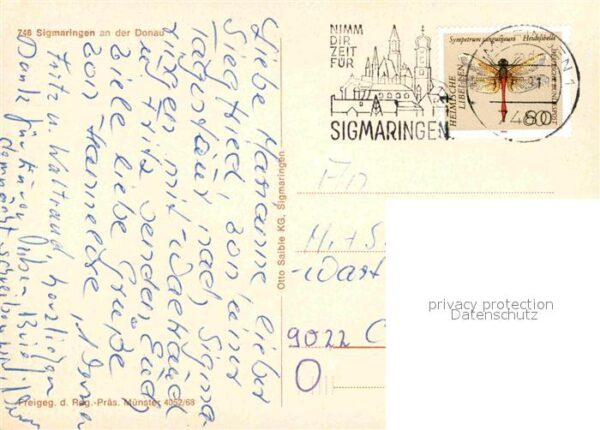 746 Sigmaringen an der Donau
Liebe Marianne lieber
Siegfried, von einer
Tagestour nach Sigma-
ringen mit Waltraud
u. Fritz senden Euch
viele liebe Grüße
von Hannelore,
Fritz u. Waltraud, herzlichen
Dank für
Freigeg. d. Reg.-Präs. Münster 4052/68
Otto Saible KG. Sigmaringen
NIMM
DIR
ZEIT
FÜR
SIGMARINGEN
Sympetrum sanguineum Heidelibelle
HEIMISCHE
LIBELLEN
DEUTSCHE BUNDESPOST
60
An
M. + S.
9022 C
privacy protection
Datenschutz